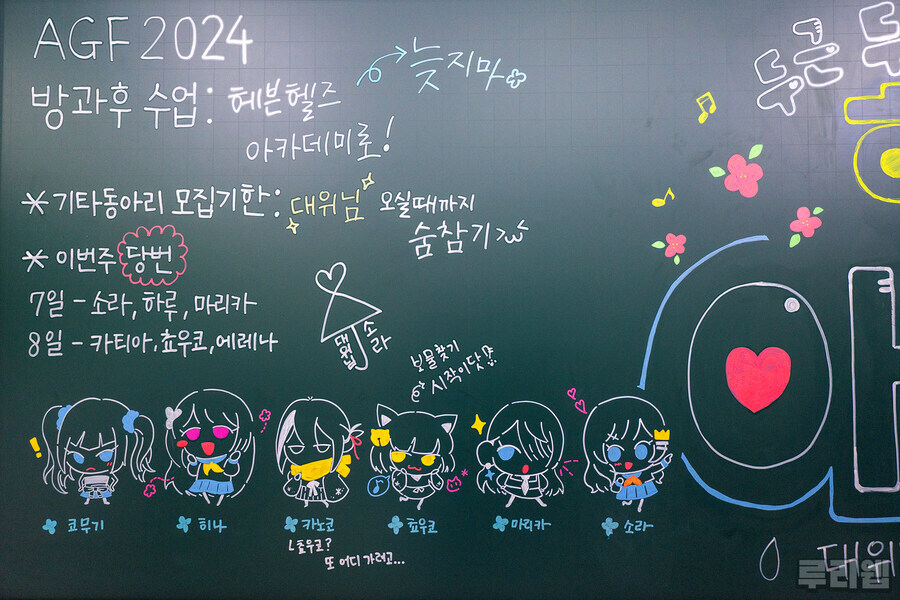 AGF 2024
늦지마
방과후 수업: 헤븐헬즈
아카데미로!
* 기타동아리 모집기한: 대위님 오실때까지
숨참기
* 이번주 당번
7일 - 소라, 하루, 마리카
8일 - 카티아, 쵸우코, 에레나
대위님 소라
보물찾기
시작이닷!
코무기
히나
카노코
쵸우코
마리카
소라
쵸우코?
또 어디 가려고...
두근두
대위
루리웹